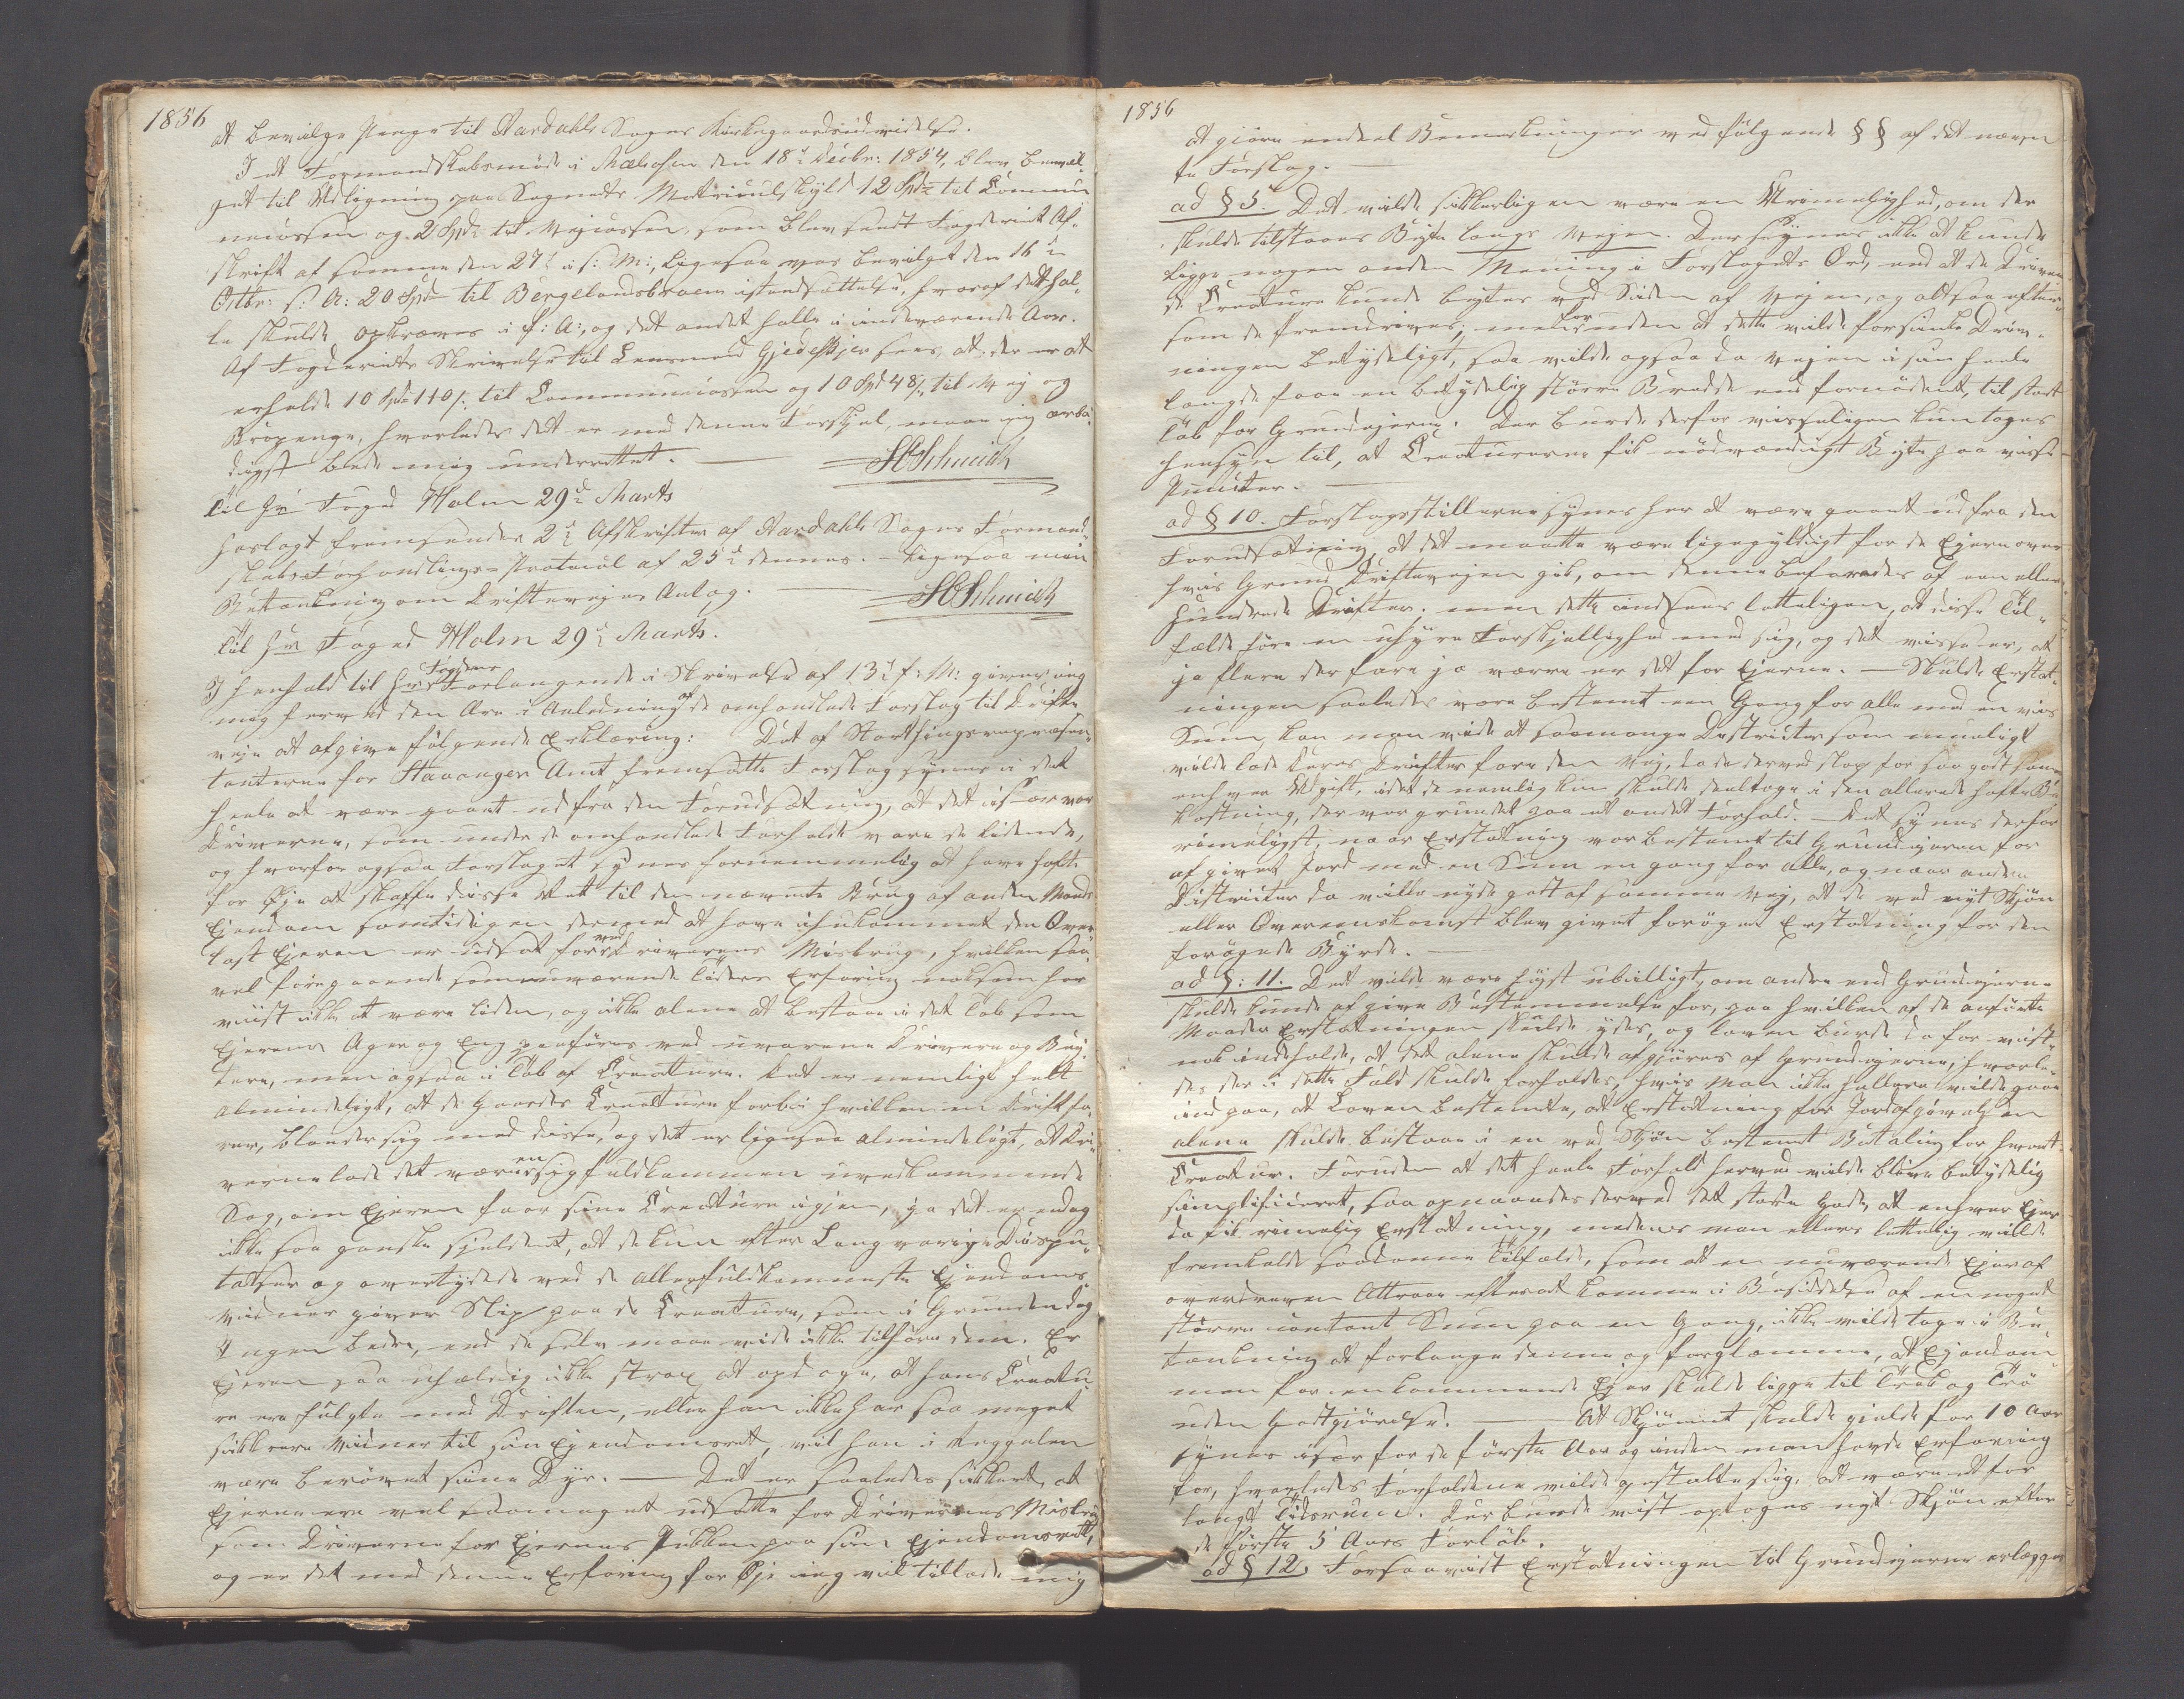 1856
at bevilge Penge til Aardahls Sogns Kirkegaardsudvidelse.
I et Formandskabsmøde i Mælosen den 18de Decbr: 1854, blev bevil-
get til Udligning paa Sognets Matriculskyld 12 Spd til Commun
necassen og 2 Spd til Vejcassen, som blev sendt Fogderiet Af-
skrift af samme den 27de i s: M:, ligesaa var bevilget den 16de
Octbr: s: A: 20 Spd til Bergelandsbroens istandsættelse, hvoraf det hal-
le skulde opkræves i f: A:, og det andet halle i indeværende Aar.
Af Fogderiets Skrivelse til Lensmand Gjedeskjer sees, at der er at
erholde 10 Spd 110 s. til Communecassen og 10 Spd 48 s. til Vej og
Bropenge, hvorledes det er med denne Forskjel, maa jeg ærbø-
digst bede mig underrettet.
Til Hr Foged Holm 29de Marts
Hoslagt fremsendes 2de Afskrifter af Aardahls Sogns Formand-
skabs Forhandlings-Protocol af 25de dennes. Ligesaa min
Betænkning om Driftevejes Anlæg.
Til Hr Foged Holm 29de Marts.
I henhold til Hr Fogdens Forlangende i Skrivelse af 13de f: M: giver jeg
mig herved den Ære i Anledning af de omhandlede Forslag til Drifte
veje at afgive følgende Erklæring: Det af Storthingsrepræsen-
tanterne for Stavanger Amt fremsatte Forslag synes i det
heele at være gaaet ud fra den Forudsætning, at det især var
Driverne, som under de omhandlede Forholde vare de lidende,
og hvorfor ogsaa Forslaget synes fornemmelig at have hafte
for Øje at skaffe disse Ret til den nævnte Brug af anden Mands
Ejendom samtidigen dermed at have ihukommet den Over-
last Ejeren er udsat for ved Driverens Misbrug, hvilken saa-
vel foregaaende som nuværende Tiders Erfaring noksom har
viist ikke at være liden, og ikke alene at bestaae i det Tab som
Ejerens Ager og Eng paaføres ved uvarene Drivere og Bey-
tere, men ogsaa i Tab af Creature. Det er nemlig helt
almindeligt, at de Gaardes Creature forbi hvilken en Drift fa-
rer, blander sig med disse, og det er ligesaa almindeligt, at Dri-
verne lade det være en sig fuldkommen uvedkommende
Sag, om Ejeren faar sine Creature igjen, ja det er endog
ikke saa ganske sjeldent, at de kun efter langvarige Dispu-
tatser og overtydede ved de allerfuldkomneste Ejendoms-
vidner giver Slip paa de Creature, som i Grunden dog
Ingen bedre, end de selv maae vide ikke tilhøre dem. Er
Ejeren saa uheldig ikke strax at opdage, at hans Creatu-
re ere fulgte med Driften, eller han ikke har saa meget
sikkrere Vidner til sin Ejendomsret, vil han i Reggelen
være berøvet sine Dyr. — Det er saaledes sikkert, at
Ejerne ere vel saameget udsatte for Drivernes Misbrug
som Driverne for Ejernes Pukken paa sin Ejendomsrett,
og er det med denne Erfaring for Øje jeg vil tillade mig
1856
at gjøre endeel Bemerkninger ved følgende § § af det nævn
te Forslag.
ad § 5. Det vilde sikkerligen være en Urimelighed, om der
skulde tilstaaes Beyte langs Vejen. Der synes ikke at kunde
ligge nogen anden Mening i Forslagets Ord, end at de Driven
de Creature kunde beytes ved Siden af Vejen, og altsaa efter-
som de fremdrives; men foruden at dette vilde forsinke Driv-
ningen betydeligt, saa vilde ogsaa da Vejen i sin heele
Længde faae en betydelig større Bredde end fornødent, til stort
Tab for Grundejerne. Der burde derfor visseligen kun tages
hensyn til, at Creaturerne fik nødvendigt Beyte paa visse
Puncter.
ad § 10. Forslagsstillerne synes her at være gaaet ud fra den
Forudsætning, at det maatte være ligegyldigt for de Ejere over
hvis Grund Driftevejen gik, om denne befaredes af een eller
hundrede Drifter. men dette indsees letteligen, at disse Til-
fælde føre en uhyre Forskjellighed med sig, og det visse er, at
jo flere der fare jo værre er det for Ejerne. — Skulde Erstat-
ningen saaledes være bestemt een Gang for alle med en vis
Sum, kan man vide at saamange Districter som mueligt
vilde lade deres Drifter fare den Vej, da de derved slap for saa godt som
enhver Udgift, idet de nemlig kun skulde deeltage i den allerede hafte Be
kostning, der var grundet paa et andet Forhold. — Det synes derfor
rimeligst, naar Erstatning var bestemt til Grundejeren for
afgivet Jord med en Sum en gang for alle, og naar andre
Districter da ville nyde godt af samme Vej, at de ved nyt Skjøn
eller Overeenskomst blev givet forøget Erstatning for den
forøgede Byrde.
ad §: 11. Det vilde være høyst ubilligt, om andre end Grundejerne
skulde kunde afgive Bestemmelse for, paa hvilken af de anførte
Maader Erstatningen skulde ydes, og Loven burde da for vist-
nok indeholde, at det alene skulde afgjøres af Grundejerne, hvorle-
des der i dette Fald skulde forholdes, hvis man ikke hellere vilde gaae
ind paa, at Loven bestemte, at Erstatning for Jordafgivelsen
alene skulde bestaae i en ved Skjøn bestemt Betaling for hvert
Creatur. Foruden at det heele Forhold herved vilde blive betydelig
simplificeret, saa opnaaedes derved det store Gode, at enhver Ejer
da fik rimelig Erstatning, medens man ellers lettelig vilde
fremkalde saadanne Tilfælde, som at en nuværende Ejer af
overdreven Attraae efter at komme i Besiddelse af en noget
større contant Sum paa en Gang, ikke vilde tage i Be-
tænkning at forlange denne og forglemme, at Ejendom-
men for en kommende Ejer skulde ligge til Træk og Træ
uden Godtgjørelse. — At Skjønnet skulde gjælde for 10 Aar
synes især for de første Aar og inden man havde Erfaring
for, hvorledes Forholdene vilde gestalte sig, at være et for
langt Tidsrum. Der burde vist optages nyt Skjøn efter
de første 5 Aars Forløb.
ad § 12. Forsaavidt Erstatningen til Grundejerne erlægges